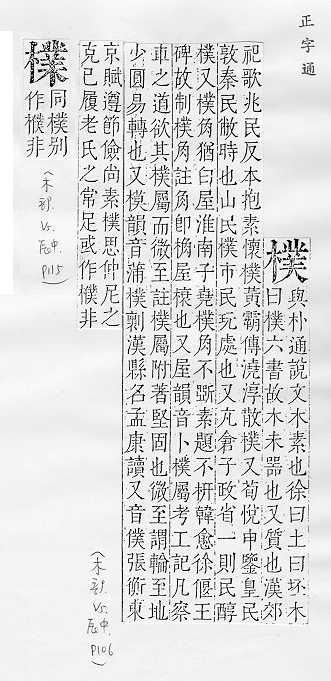 正字通
樸與朴通說文木素也徐曰土曰坯木
曰樸六書故木未器也又質也漢郊
祀歌兆民反本抱素懷樸黃霸傳澆淳散樸又荀悅申鑒皇民
敦秦民敝時也山民樸市民玩處也又亢倉子政省一則民醇
樸又樸角猶臼屋淮南子堯樸角不斲素題不枅韓愈徐偃王
碑故制樸角註角卽桷屋榱也又屋韻音卜樸屬考工記凡察
車之道欲其樸屬而微至註樸屬附著堅固也微至謂輪至地
少圓易轉也又模韻音蒲樸劓漢縣名孟康讀又音僕張衡東
京賦遵節儉尚素樸思仲尼之
克己履老氏之常足或作檏非
(木部. Vs. 辰中. P106)
檏同樸別
作檏非
(木部. Vs. 辰中. P115)